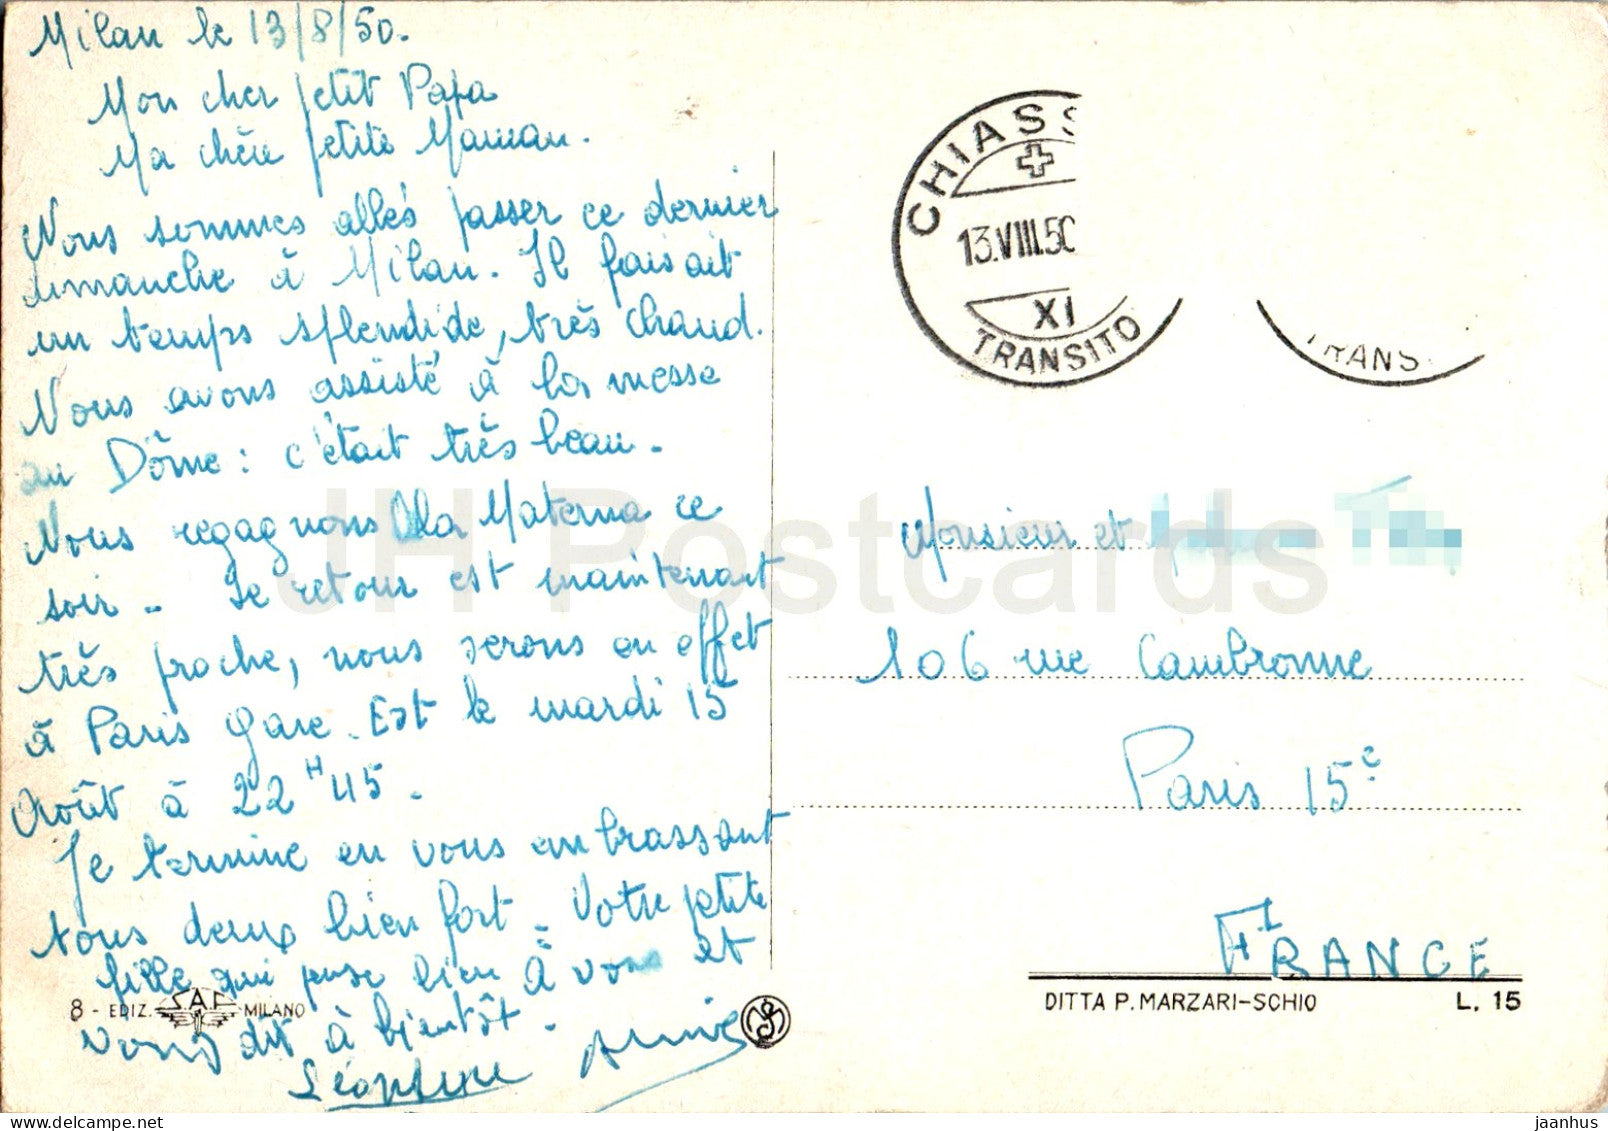 Milan le 13/8/50.
Mon cher petit Papa
Ma chère petite Maman.
Nous sommes allés passer ce dernier
dimanche à Milan. Il faisait
un temps splendide, très chaud.
Nous avons assisté à la messe
au Dôme : c'était très beau.
Nous regagnons la Materna ce
soir - Le retour est maintenant
très proche, nous serons en effet
à Paris Gare. Est le mardi 15
Août à 22 H 45.
Je termine en vous embrassant
tous deux bien fort. Votre petite
fille qui pense bien à vous et
vous dit à bientôt.
CHIASS
13.VIII.50
XI
TRANSITO
TRANS
Monsieur et
106 rue Cambronne
Paris 15e
FRANCE
8 - EDIZ. S.A.F. MILANO
DITTA P. MARZARI-SCHIO L. 15
JH Postcards
jaanhus